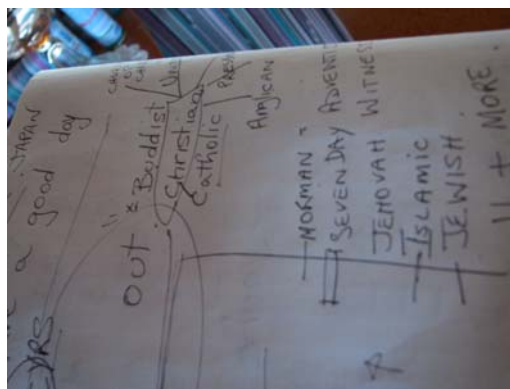 JAPAN
a good day
YRS
OUT
Buddist
Christian
Catholic
Anglican
MORMAN
SEVEN DAY ADVENTI
JEHOVAH WITNES
ISLAMIC
JEWISH
11 + MORE.